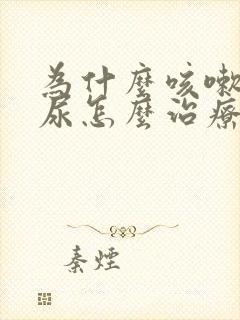 為什麼咳嗽
尿怎麼治療
秦煙